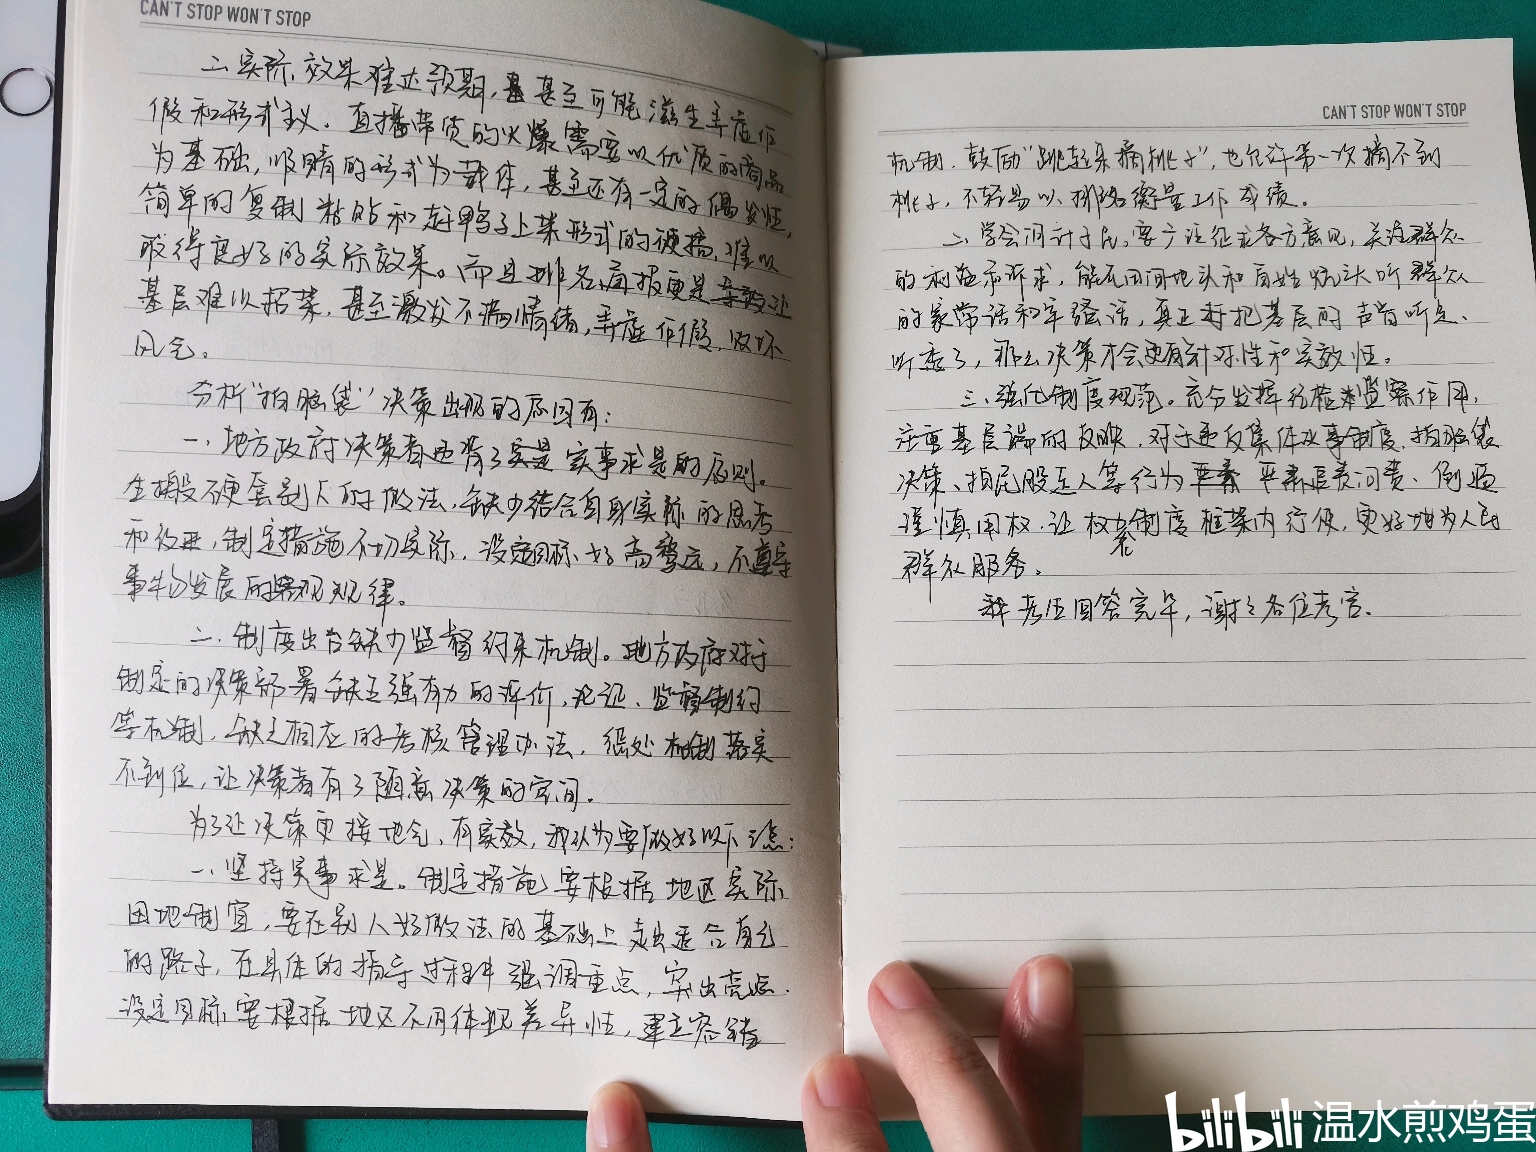 CAN'T STOP WON'T STOP
二、实际效果难达预期，甚至可能滋生弄虚作
假和形式主义。直播带货的火爆需要以优质的商品
为基础，吸睛的形式为载体，甚至还有一定的偶发性，
简单的复制粘贴和赶鸭子上架形式的硬搞，难以
取得良好的实际效果。而且排名、通报更是让
基层难以招架，甚至激发不满情绪，弄虚作假，败坏
风气。
分析"拍脑袋"决策出现的原因有：
一、地方政府决策者违背了实事求是的原则。
生搬硬套别人的做法，缺少结合自身实际的思考
和改进，制定措施不切实际，设定目标好高骛远，不遵守
事物发展的客观规律。
二、制度出台缺少监督约束机制。地方政府对于
制定的决策部署缺乏强有力的评价、论证、监督制约
等机制，缺乏相应的考核管理办法，惩处机制落实
不到位，让决策者有了随意决策的空间。
为了让决策更接地气，有实效，我认为要做好以下三点：
一、坚持实事求是。制定措施要根据地区实际
因地制宜，要在别人好做法的基础上走出适合自己
的路子，在具体的指导过程中强调重点，突出亮点。
设定目标要根据地区不同体现差异性，建立容错
CAN'T STOP WON'T STOP
机制，鼓励"跳起来摘桃子"，也允许第一次摘不到
桃子，不轻易以排名衡量工作成绩。
二、学会问计于民，要广泛征求各方意见，关注群众
的利益和诉求，能在田间地头和百姓炕头听群众
的家常话和牢骚话，真正把基层的声音听足、
听透了，那么决策才会更有针对性和实效性。
三、强化制度规范。充分发挥纪检监察作用，
注重基层端的反映，对于违反集体议事制度、拍脑袋
决策、拍屁股走人等行为严肃追责问责，倒逼
谨慎用权，让权力在制度框架内行使，更好地为人民
群众服务。
考生回答完毕，谢谢各位考官。
bilibili 温水煎鸡蛋